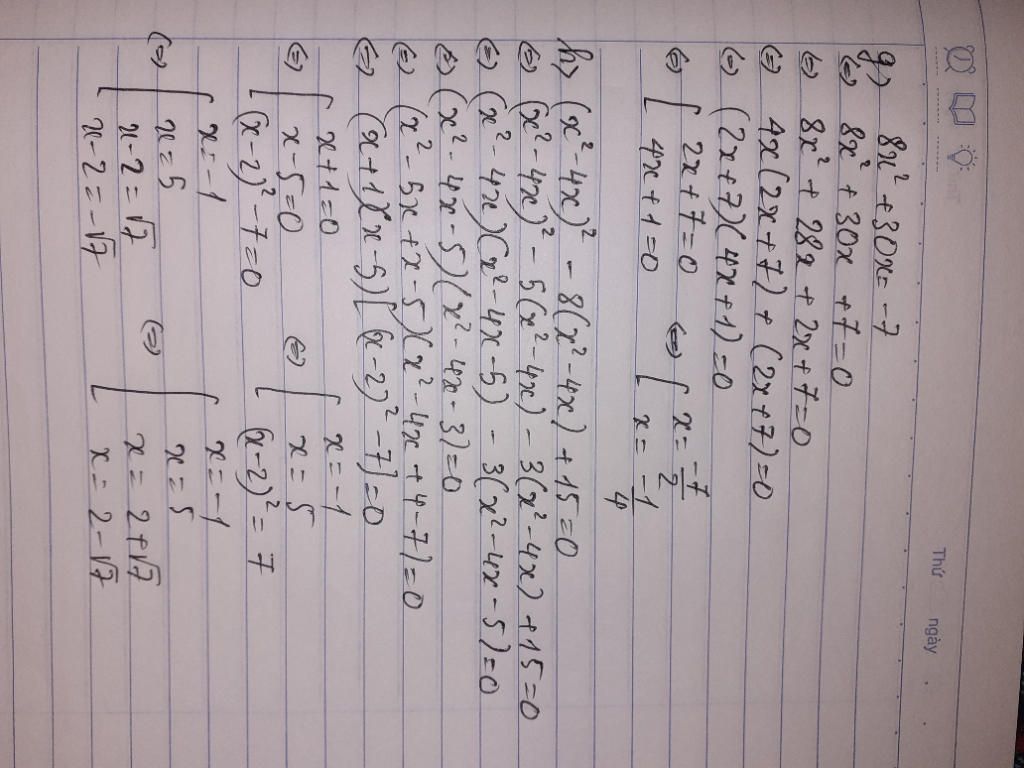 Thứ ngày
g) 8x² + 30x = -7
(=) 8x² + 30x + 7 = 0
(=) 8x² + 28x + 2x + 7 = 0
(=) 4x(2x + 7) + (2x + 7) = 0
(=) (2x + 7)(4x + 1) = 0
(=) [ 2x + 7 = 0 (=) [ x = -7/2
4x + 1 = 0 x = -1/4
h) (x² - 4x)² - 8(x² - 4x) + 15 = 0
(=) (x² - 4x)² - 5(x² - 4x) - 3(x² - 4x) + 15 = 0
(=) (x² - 4x)(x² - 4x - 5) - 3(x² - 4x - 5) = 0
(=) (x² - 4x - 5)(x² - 4x - 3) = 0
(=) (x² - 5x + x - 5)(x² - 4x + 4 - 7) = 0
(=) (x + 1)(x - 5)[(x - 2)² - 7] = 0
[ x + 1 = 0 [ x = -1
(=) x - 5 = 0 (=) x = 5
(x - 2)² - 7 = 0 (x - 2)² = 7
[ x = -1 [ x = -1
(=) x = 5 (=) x = 5
x - 2 = √7 x = 2 + √7
x - 2 = -√7 x = 2 - √7